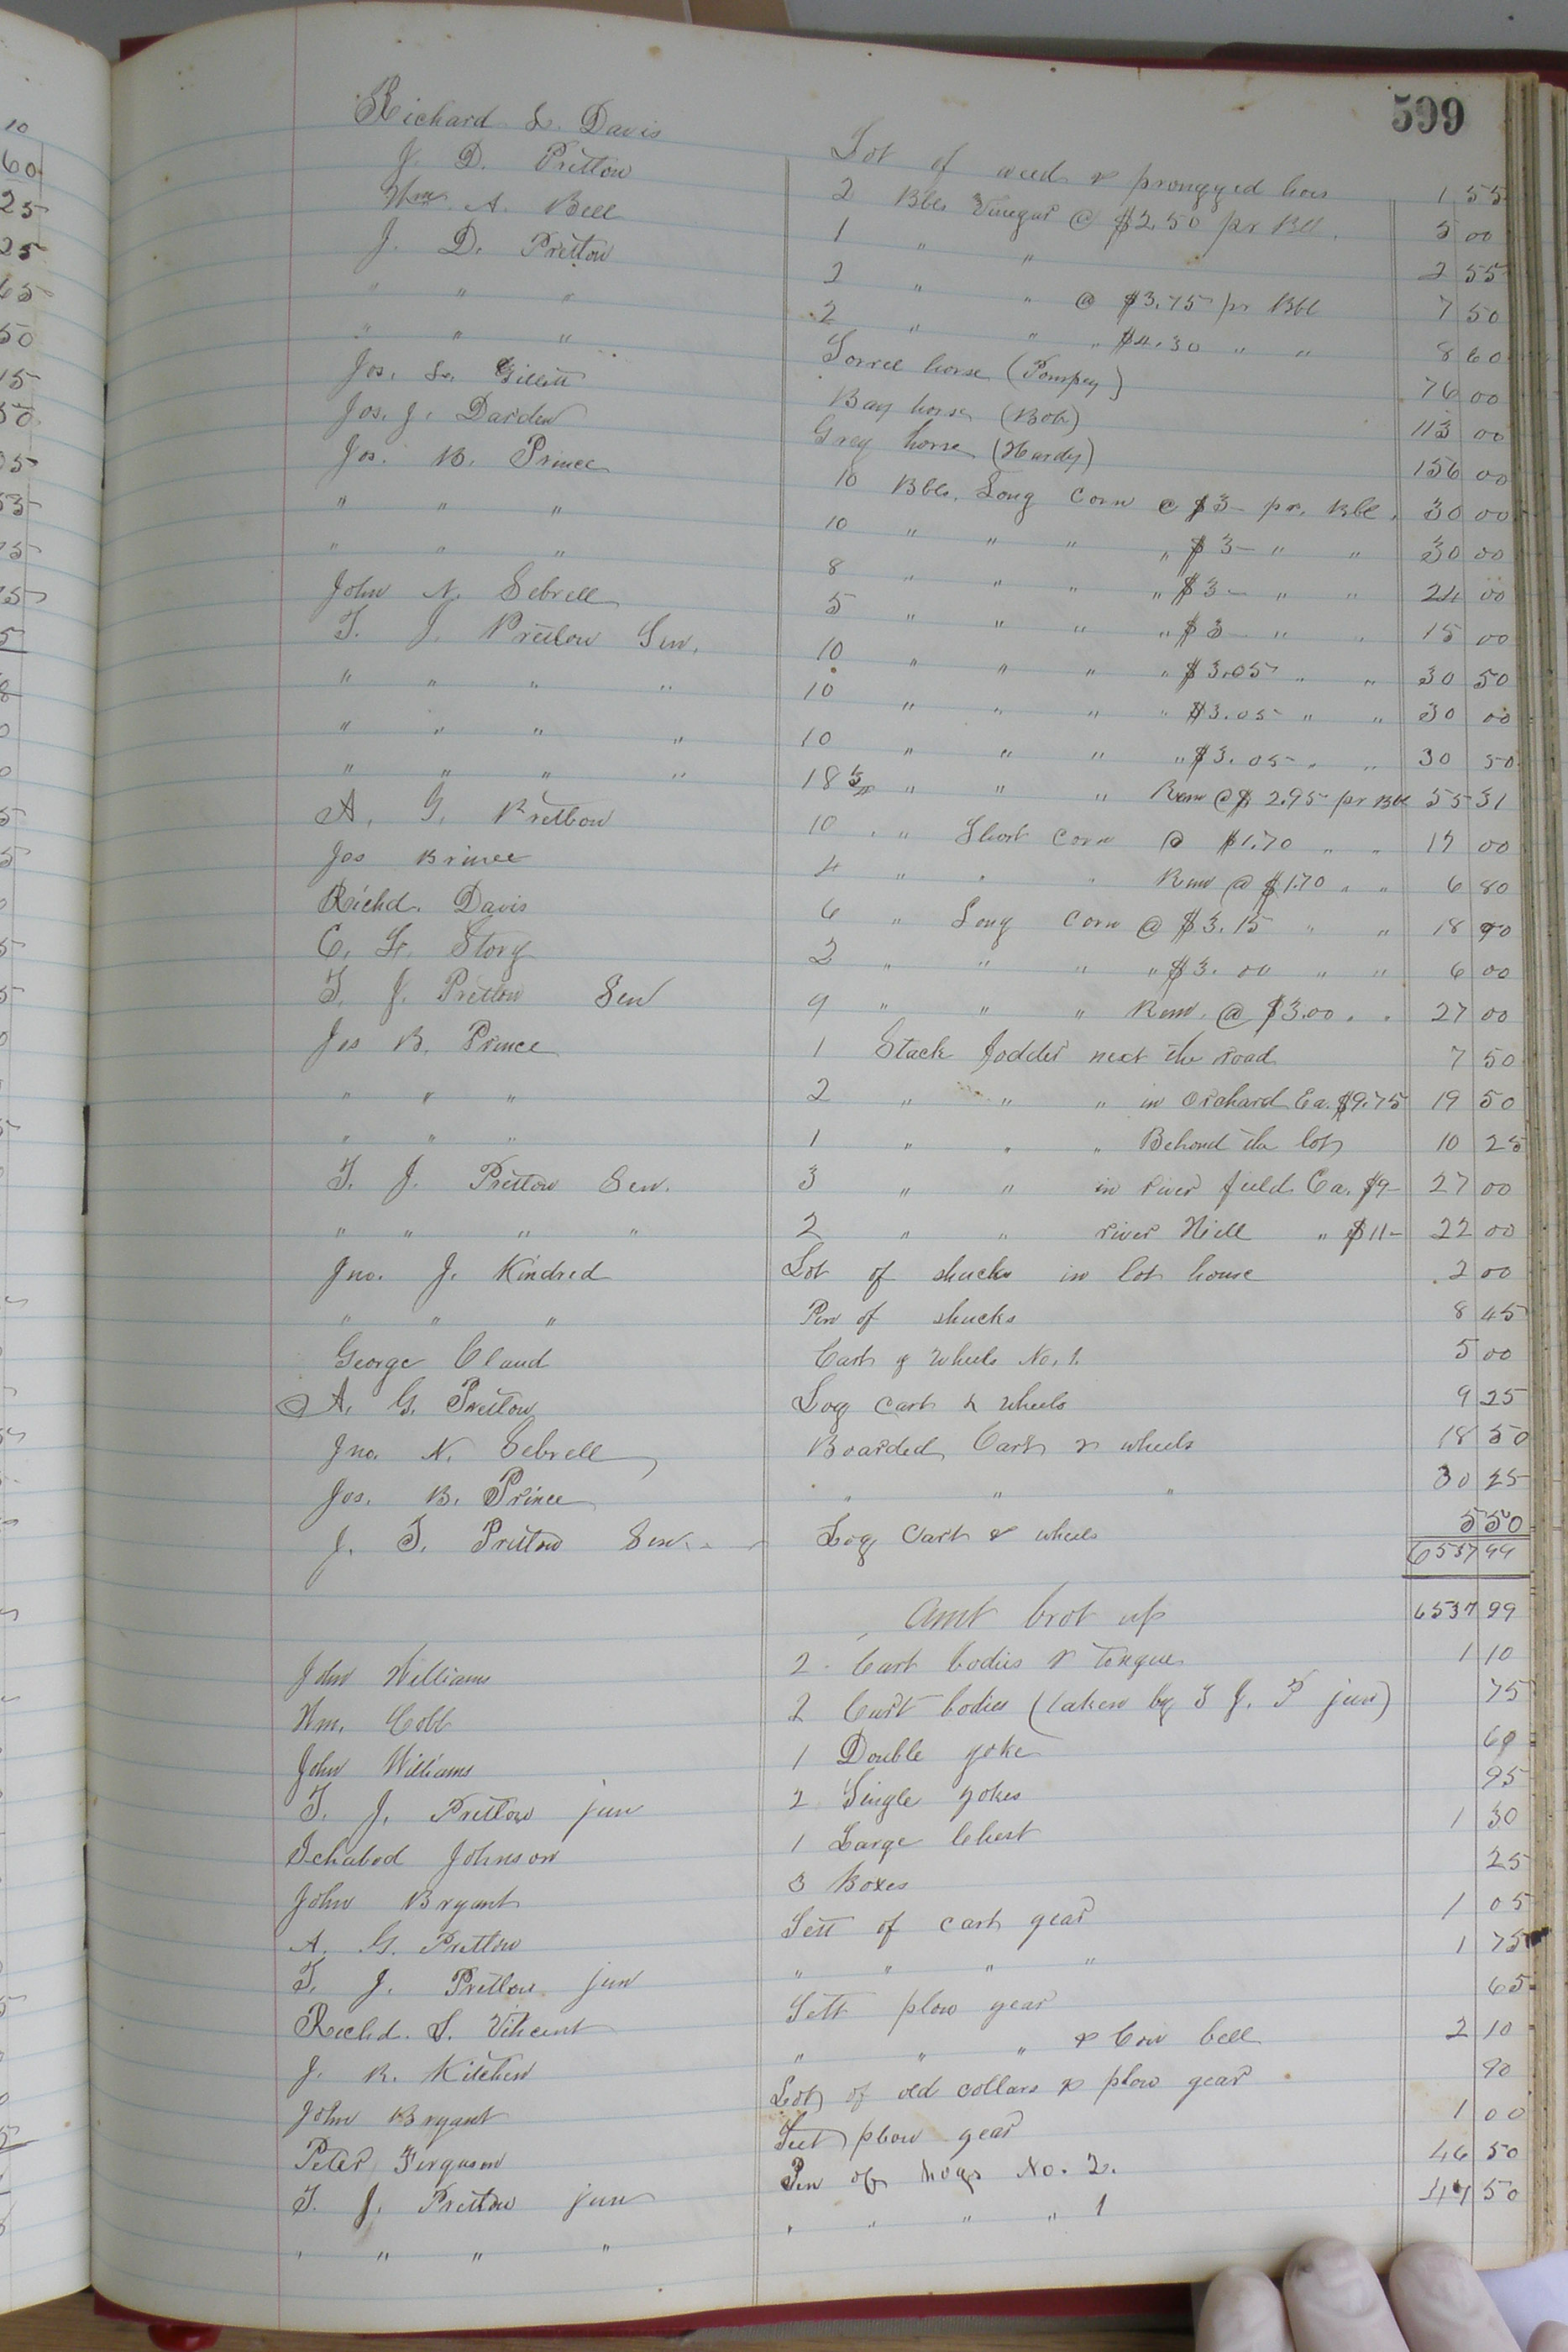 599
Richard L. Davis Lot of weed & prongged hoes 1 55
J. D. Pretlow 2 Bbls Vinegar @ $2.50 pr Bbl. 5 00
Wm A. Bell 1 " " 2 55
J. D. Pretlow 2 " " @ $3.75 pr Bbl 7 50
" " " 2 " " " $4.30 " " 8 60
" " " Sorrel horse (Pompey) 76 00
Jos. L. Gillett Bay horse (Bob) 113 00
Jos. J. Darden Grey horse (Hardy) 156 00
Jos. B. Prince 10 Bbls. Long Corn @ $3- pr. Bbl. 30 00
" " " 10 " " " " $3- " " 30 00
" " " 8 " " " $3- " " 24 00
John N. Sebrell 5 " " " " $3 " " 15 00
T. J. Pretlow Sen. 10 " " " " $3.05 " " 30 50
" " " " 10 " " " " $3.05 " " 30 00
" " " " 10 " " " " $3.05 " " 30 50
" " " " 18 " " " Rem @ $2.95 pr Bbl 55 31
A. G. Pretlow 10 " " Short Corn @ $1.70 " " 17 00
Jos Prince 4 " " " Rem @ $1.70 " " 6 80
Richd. Davis 6 " Long Corn @ $3.15 " " 18 90
C. F. Story 2 " " " " $3.00 " " 6 00
T. J. Pretlow Sen 9 " " " Rem. @ $3.00 " " 27 00
Jos B. Prince 1 Stack fodder next the road 7 50
" " " 2 " " " in Orchard Ea. $9.75 19 50
" " " 1 " " " Behond the lot 10 25
T. J. Pretlow Sen. 3 " " in river field Ea. $9- 27 00
" " " " 2 " " river Hill " $11- 22 00
Jno. J. Kindred Lot of shucks in lot house 2 00
" " " Pen of shucks 8 45
George Claud Cart & wheels No. 1. 5 00
A. G. Pretlow Log Cart & wheels 9 25
Jno. N. Sebrell Boarded Cart & wheels 18 50
Jos. B. Prince " " " 30 25
J. T. Pretlow Sen. Log Cart & wheels 5 50
6537 99
Amt brot up 6537 99
John Williams 2 Cart bodies & Tongue 1 10
Wm. Cobb 2 Cart bodies (taken by T J. P jun) 75
John Williams 1 Double yoke 60
T. J. Pretlow jun 2 Single yokes 95
Ichabod Johnson 1 Large Chest 1 30
John Bryant 3 Boxes 25
A. G. Pretlow Sett of cart gear 1 05
T. J. Pretlow jun " " " " 1 75
Richd. S. Vincent Sett plow gear 65
J. R. Kitchen " " " & Cow bell 2 10
John Bryant Lot of old collars & plow gear 90
Peter Ferguson Sett plow gear 1 00
T. J. Pretlow jun Pen of hogs No. 2. 46 50
" " " " " " " " 1 50